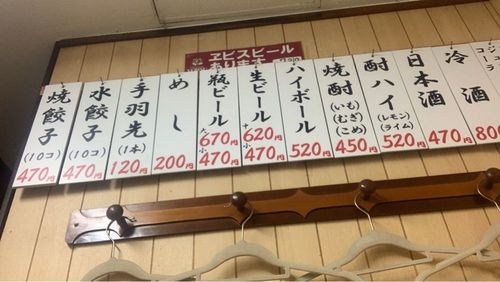 ヱビスビール
あります
焼餃子
(10コ)
470円
水餃子
(10コ)
470円
手羽先
(1本)
120円
めし
200円
瓶ビール
大670円
小470円
生ビール
中620円
小470円
ハイボール
520円
焼酎
(いも)
(むぎ)
(こめ)
450円
酎ハイ
(レモン)
(ライム)
520円
日本酒
470円
冷酒
800